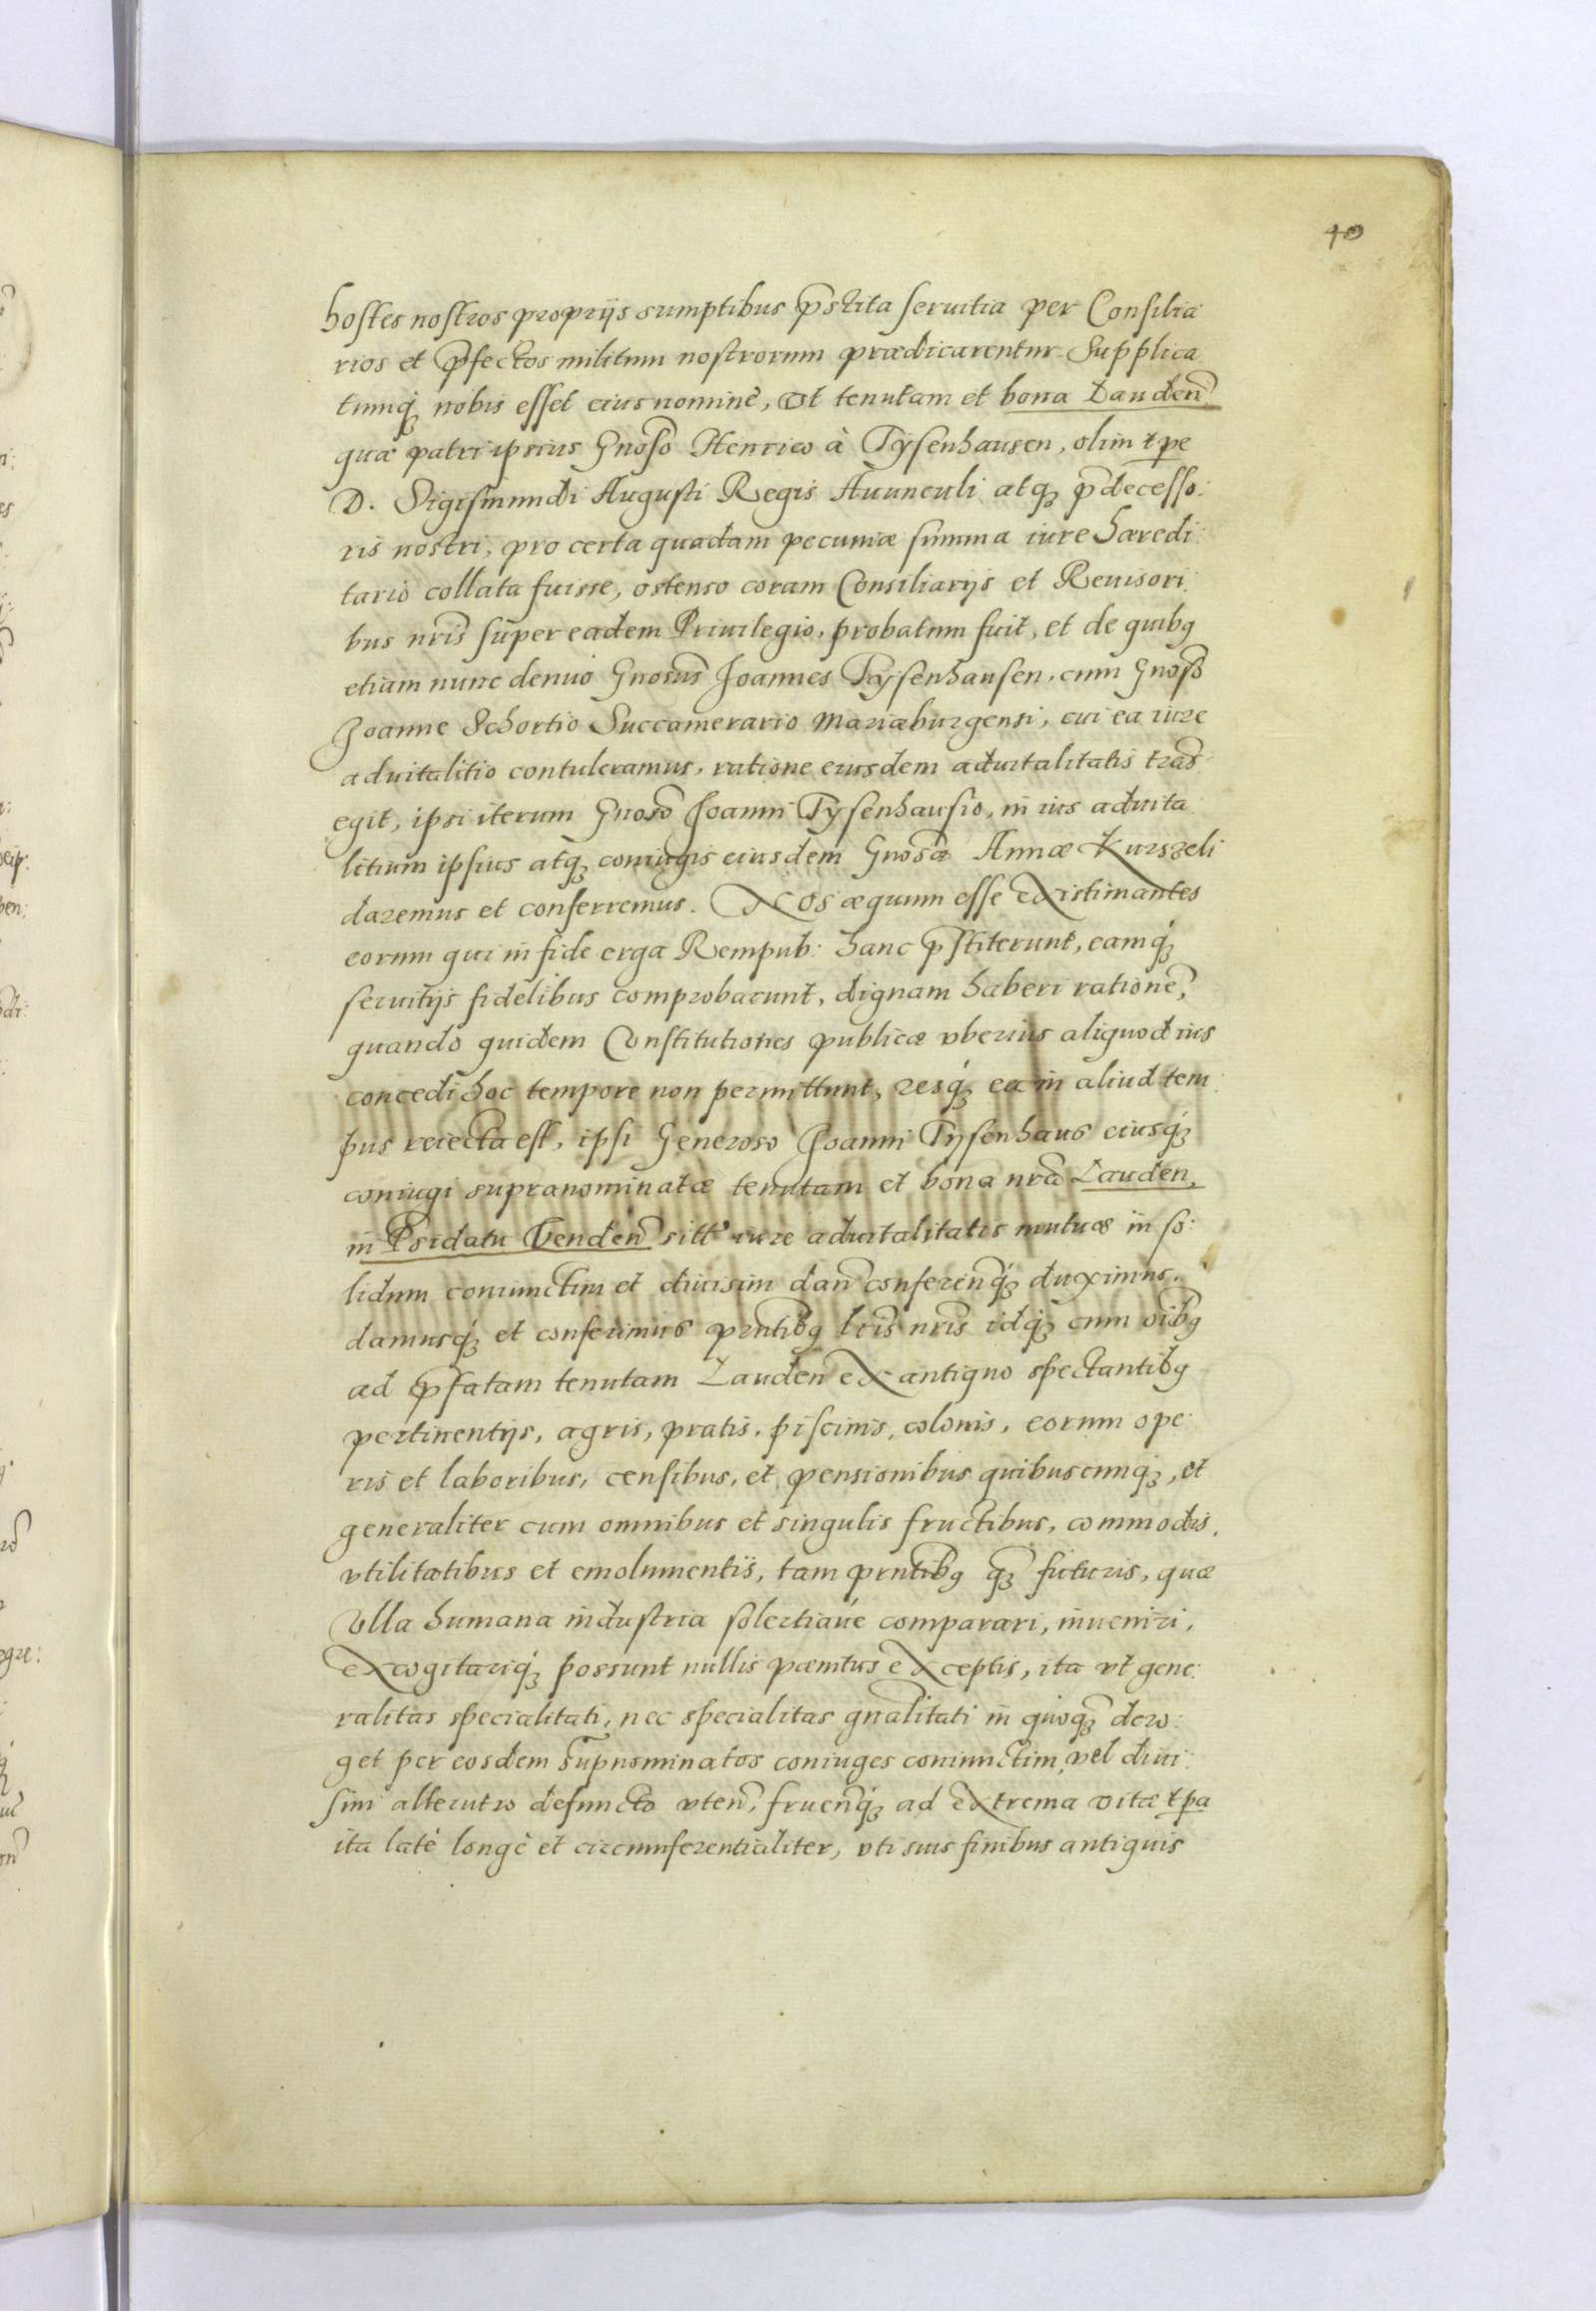 40
hostes nostros proprijs sumptibus p̄stita seruitia per Consilia
rios et p̄fectos militum nostrorum prædicarentur. Supplica
tumq́ꝫ nobis esset eius nominè, vt tenutam et bona Lauden̄
quæ patri ipsius Gnoso Henrico à Tÿsenhausen, olim tpe
D. Sigismundi Augusti Regis Auunculi atqꝫ p̄decesso:
ris nostri, pro certa quadam pecuniæ summa iure hæredi:
tario collata fuisse, ostenso coram Consiliarijs et Reuisori:
bus nr̄is super eadem Priuilegio, probatum fuit, et de quibꝫ
etiam nunc denuò Gnosus Joannes Tÿsenhausen, cum Gnoso
Joanne Schortio Succamerario Mariæburgensi, cui ea iure
aduitalitio contuleramus, ratione eiusdem aduitalitatis tras̄
egit, ipsi iterum Gnoso Joanni Tÿsenhausio, in ius aduita
litium ipsius atqꝫ coniugis eiusdem Gnosæ Annæ Kurszeli
daremus et conferremus. Nos æquum esse existimantes
eorum qui in fide erga Rempub: hanc p̄stiterunt, eamq́ꝫ
seruitijs fidelibus comprobarunt, dignam haberi rationē,
quando quidem Constitutiones publicæ vberius aliquod ius
concedi hoc tempore non permittunt, resq́ꝫ ea in aliud tem
pus reiecta est, ipsi Generoso Joanni Tÿsenhaus eiusq́ꝫ
coniugi supranominatæ tenutam et bona nr̄a Lauden,
in Psidatu Venden̄ sitt' iure aduitalitatis mutuæ in so:
lidum coniunctim et diuisim dan̄ conferen̄q́ꝫ duximus,
damusq́ꝫ et conferimus prntibꝫ lr̄is nr̄is idq́ꝫ cum oīibꝫ
ad p̄fatam tenutam Lauden̄ ex antiquo spectantibꝫ
pertinentijs, agris, pratis, piscinis, colonis, eorum ope:
ris et laboribus, censibus, et pensionibus quibuscunqꝫ, et
generaliter cum omnibus et singulis fructibus, commodis,
vtilitatibus et emolumentis, tam prntibꝫ q̄ꝫ futuris, quæ
vlla humana industria solertiaue comparari, inueniri,
excogitariq́ꝫ possunt nullis pænitus exceptis, ita vt gene:
ralitas specialitati, nec specialitas gnālitati in quoqꝫ dero:
get per eosdem sup̄nominatos coniuges coniunctim, vel diui:
sim alterutro defuncto vten̄, fruen̄q́ꝫ ad extrema vitæ tpa
ita latè longè et circumferentialiter, vti suis finibus antiquis